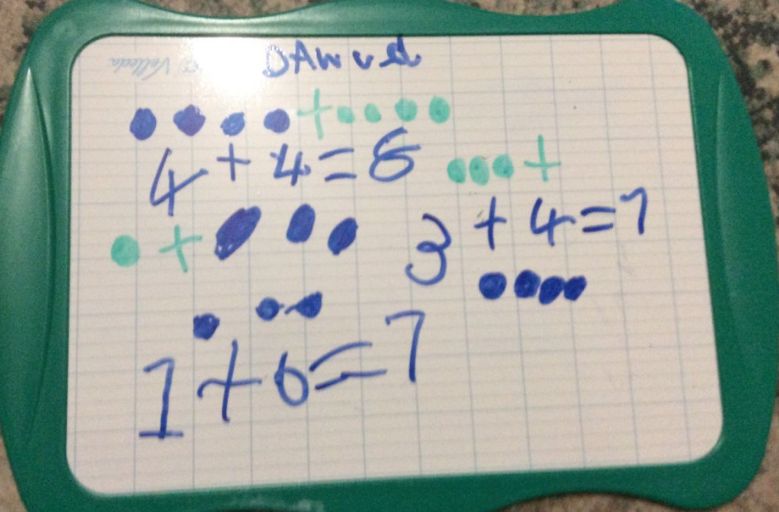 Velleda
DAwud
4+4=8
3+4=7
1+6=7